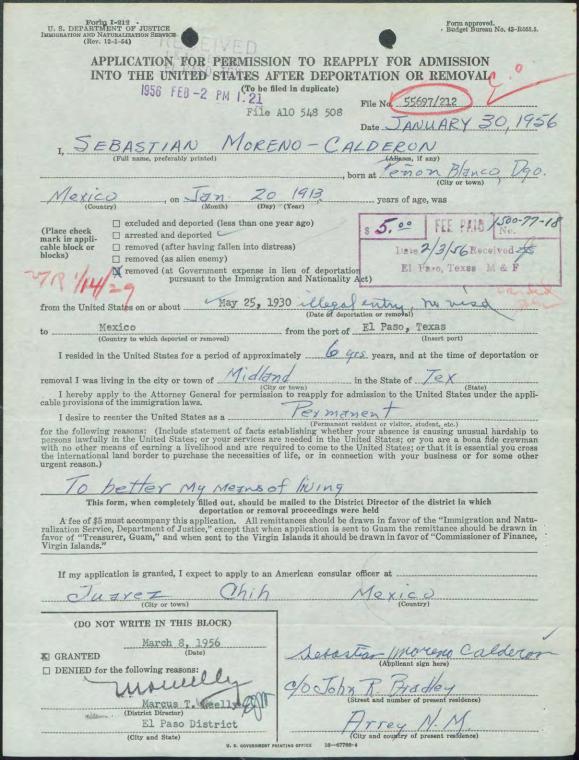 Form I-212
U. S. DEPARTMENT OF JUSTICE
IMMIGRATION AND NATURALIZATION SERVICE
(Rev. 12-1-54)
Form approved.
Budget Bureau No. 43-R055.5.
RECEIVED
APPLICATION FOR PERMISSION TO REAPPLY FOR ADMISSION
INTO THE UNITED STATES AFTER DEPORTATION OR REMOVAL
(To be filed in duplicate)
1956 FEB -2 PM 1:21
File No. 55697/212
File A10 548 508
Date JANUARY 30, 1956
I, SEBASTIAN MORENO-CALDERON
(Full name, preferably printed) (Aliases, if any)
, born at Peñon Blanco, Dgo.
(City or town)
Mexico, on Jan. 20 1913 years of age, was
(Country) (Month) (Day) (Year)
(Place check mark in applicable block or blocks)
☐ excluded and deported (less than one year ago)
☐ arrested and deported
☐ removed (after having fallen into distress)
☐ removed (as alien enemy)
☒ removed (at Government expense in lieu of deportation
pursuant to the Immigration and Nationality Act)
$ 5.00 FEE PAID No. 1500-77-18
Date 2/3/56 Received
El Paso, Texas M & F
1/14/29
from the United States on or about May 25, 1930 illegal entry, no visa
(Date of deportation or removal)
to Mexico from the port of El Paso, Texas
(Country to which deported or removed) (Insert port)
I resided in the United States for a period of approximately 6 yrs. years, and at the time of deportation or
removal I was living in the city or town of Midland in the State of Tex
(City or town) (State)
I hereby apply to the Attorney General for permission to reapply for admission to the United States under the appli-
cable provisions of the immigration laws.
I desire to reenter the United States as a Permanent
(Permanent resident or visitor, student, etc.)
for the following reasons: (Include statement of facts establishing whether your absence is causing unusual hardship to
persons lawfully in the United States; or your services are needed in the United States; or you are a bona fide crewman
with no other means of earning a livelihood and are required to come to the United States; or that it is essential you cross
the international land border to purchase the necessities of life, or in connection with your business or for some other
urgent reason.)
To better My Means of living
This form, when completely filled out, should be mailed to the District Director of the district in which
deportation or removal proceedings were held
A fee of $5 must accompany this application. All remittances should be drawn in favor of the "Immigration and Natu-
ralization Service, Department of Justice," except that when application is sent to Guam the remittance should be drawn in
favor of "Treasurer, Guam," and when sent to the Virgin Islands it should be drawn in favor of "Commissioner of Finance,
Virgin Islands."
If my application is granted, I expect to apply to an American consular officer at
Juarez Chih Mexico
(City or town) (Country)
(DO NOT WRITE IN THIS BLOCK)
March 8, 1956
(Date)
☒ GRANTED
☐ DENIED for the following reasons:
Marcus T. Neelly
(District Director)
El Paso District
(City and State)
Sebastian Moreno Calderon
(Applicant sign here)
c/o John R. Bradley
(Street and number of present residence)
Arrey N. M.
(City and country of present residence)
U. S. GOVERNMENT PRINTING OFFICE 16-67768-4